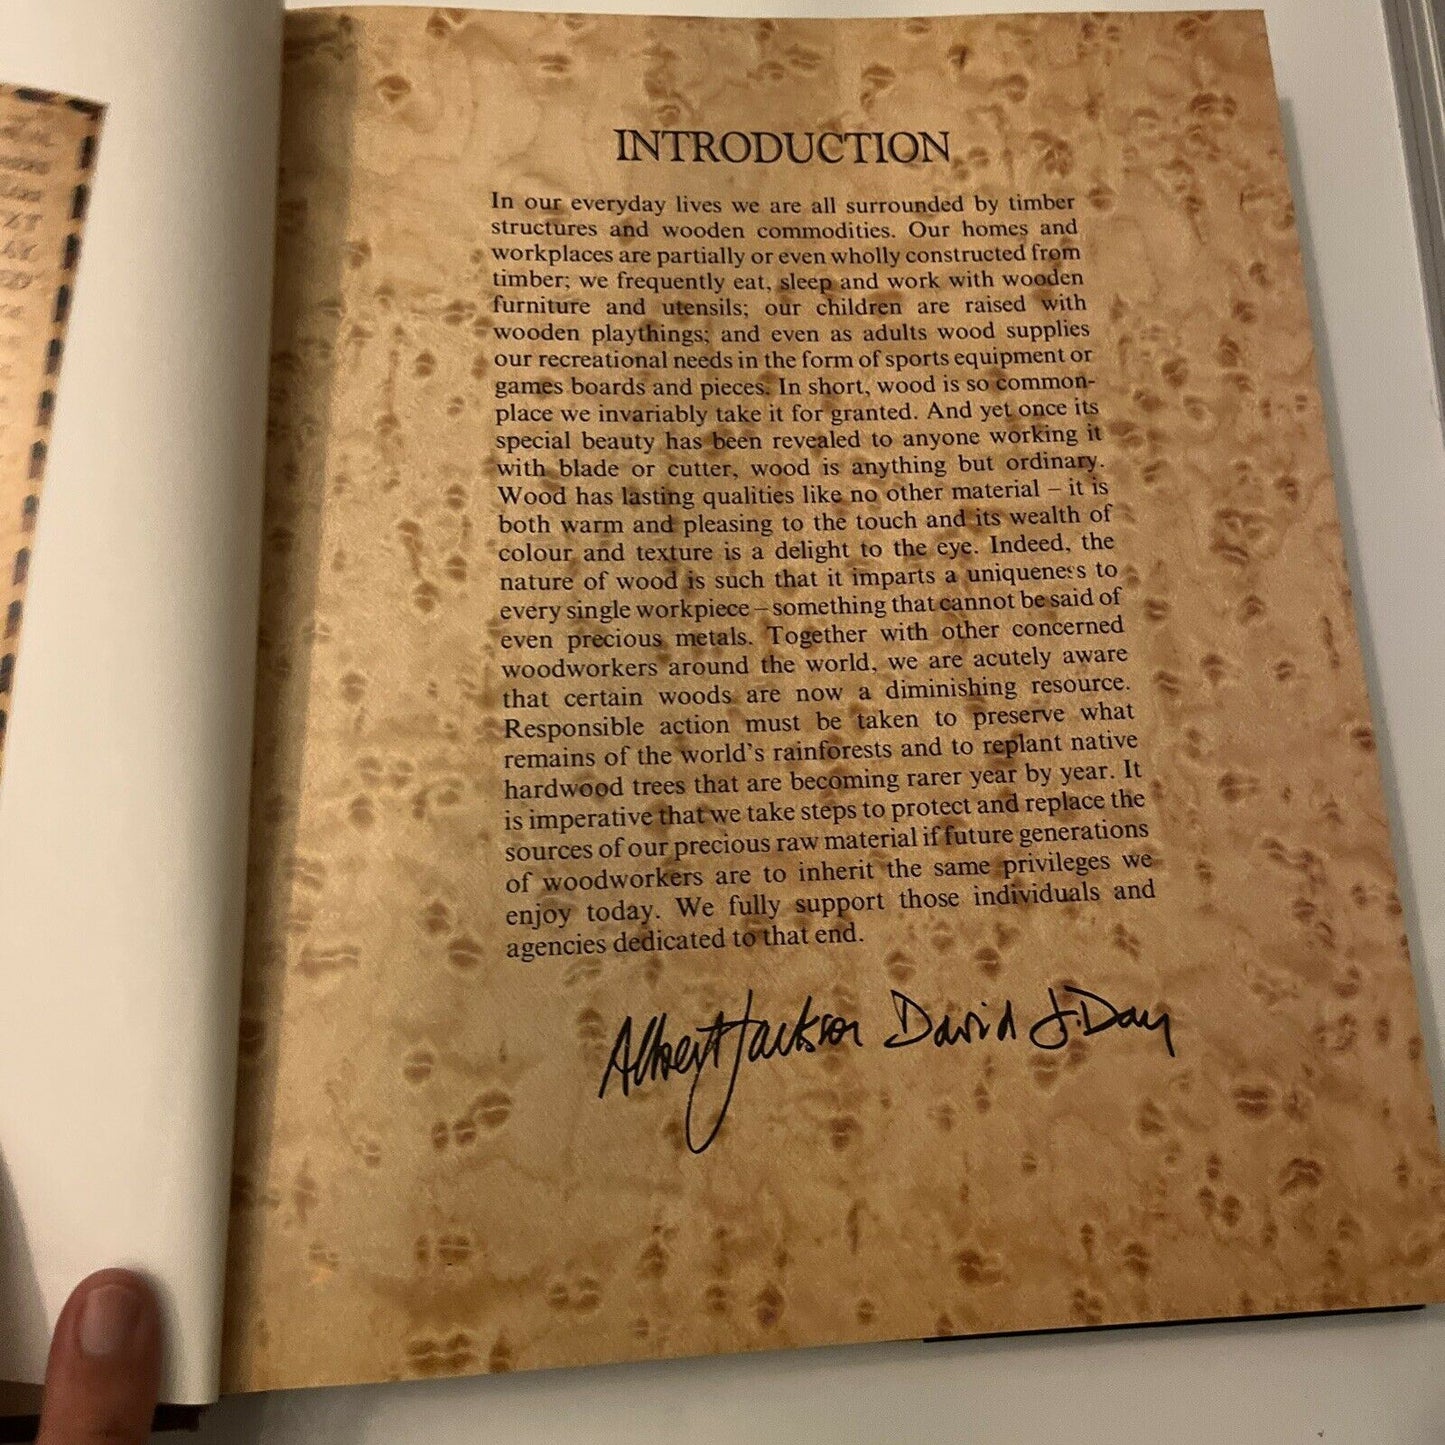 INTRODUCTION
In our everyday lives we are all surrounded by timber
structures and wooden commodities. Our homes and
workplaces are partially or even wholly constructed from
timber; we frequently eat, sleep and work with wooden
furniture and utensils; our children are raised with
wooden playthings; and even as adults wood supplies
our recreational needs in the form of sports equipment or
games boards and pieces. In short, wood is so common-
place we invariably take it for granted. And yet once its
special beauty has been revealed to anyone working it
with blade or cutter, wood is anything but ordinary.
Wood has lasting qualities like no other material – it is
both warm and pleasing to the touch and its wealth of
colour and texture is a delight to the eye. Indeed, the
nature of wood is such that it imparts a uniqueness to
every single workpiece – something that cannot be said of
even precious metals. Together with other concerned
woodworkers around the world, we are acutely aware
that certain woods are now a diminishing resource.
Responsible action must be taken to preserve what
remains of the world's rainforests and to replant native
hardwood trees that are becoming rarer year by year. It
is imperative that we take steps to protect and replace the
sources of our precious raw material if future generations
of woodworkers are to inherit the same privileges we
enjoy today. We fully support those individuals and
agencies dedicated to that end.
Albert Jackson David J. Day